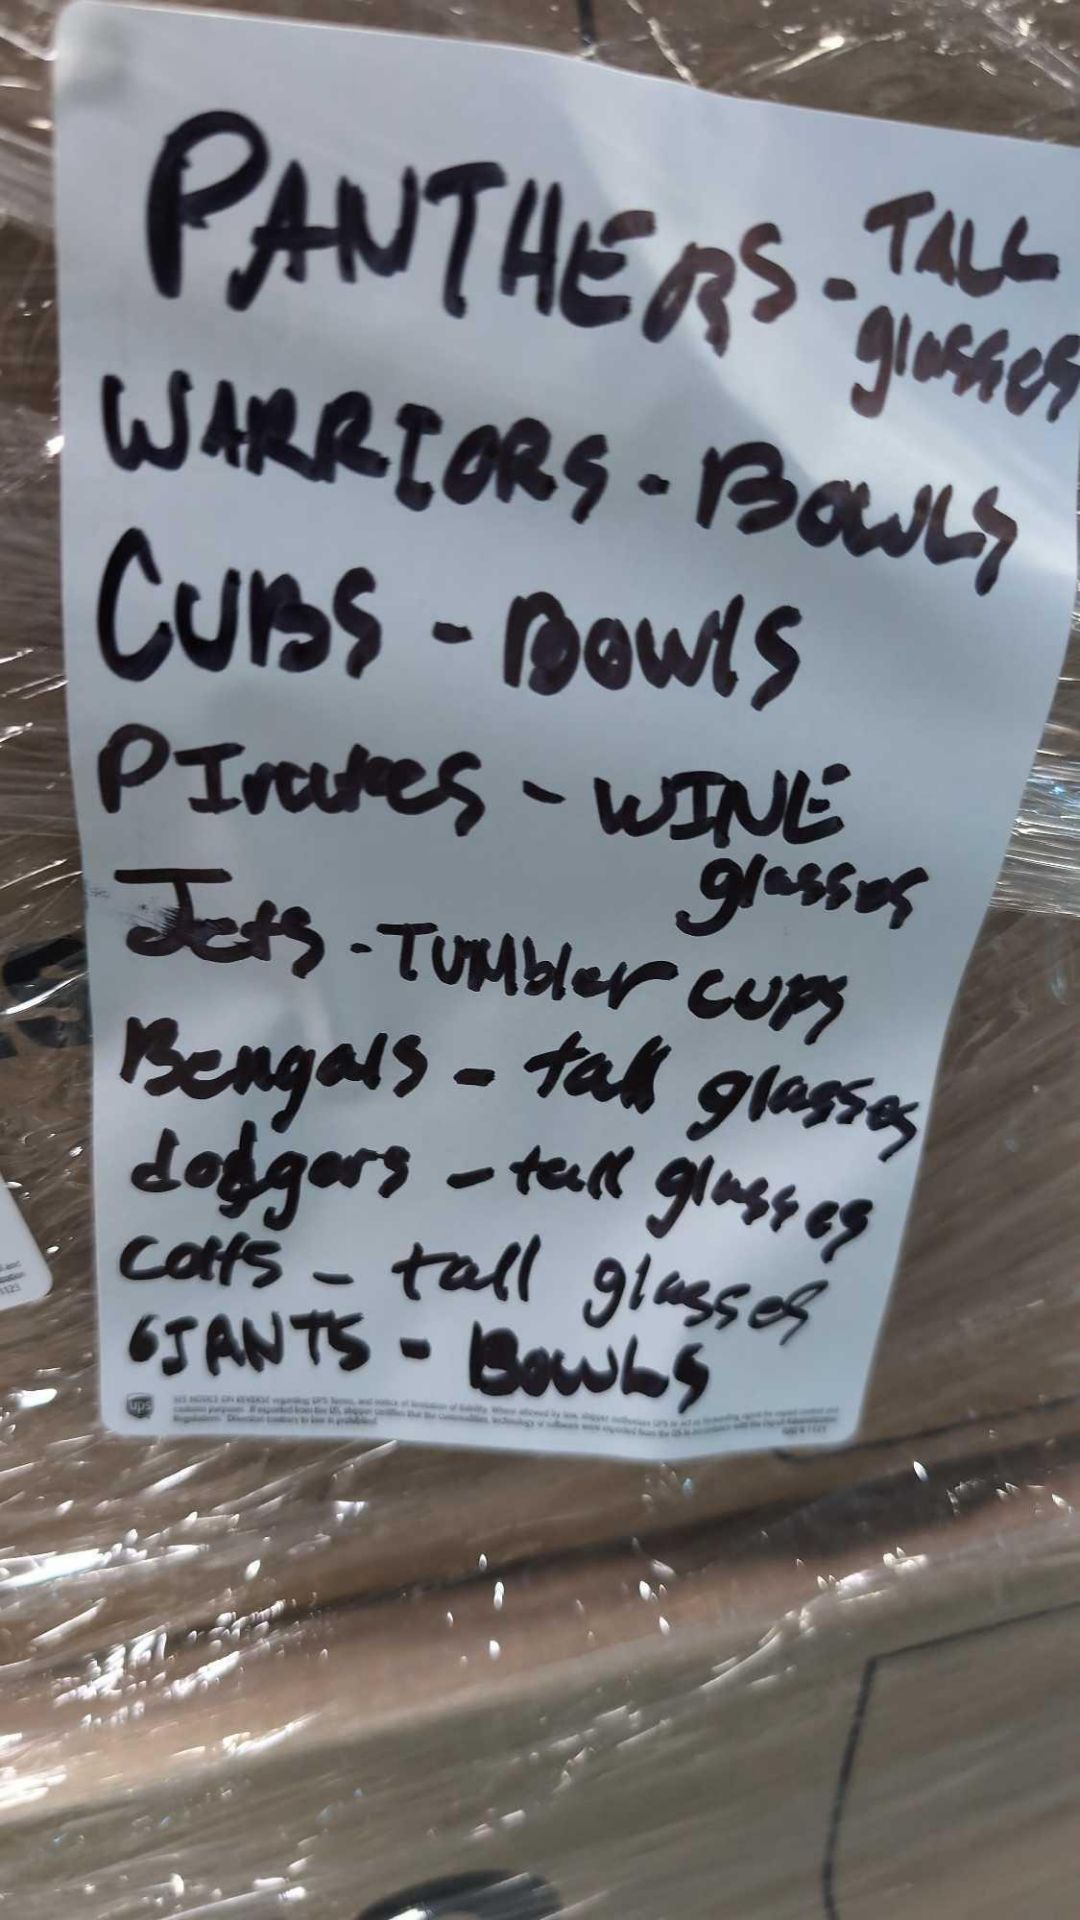 PANTHERS - TALL
glasses
WARRIORS - BOWLS
CUBS - BOWLS
PIrates - WINE
glasses
Jets - TUMbler cups
Bengals - tall glasses
dodgers - tall glasses
Colts - tall glasses
GIANTS - BOWLS
ups